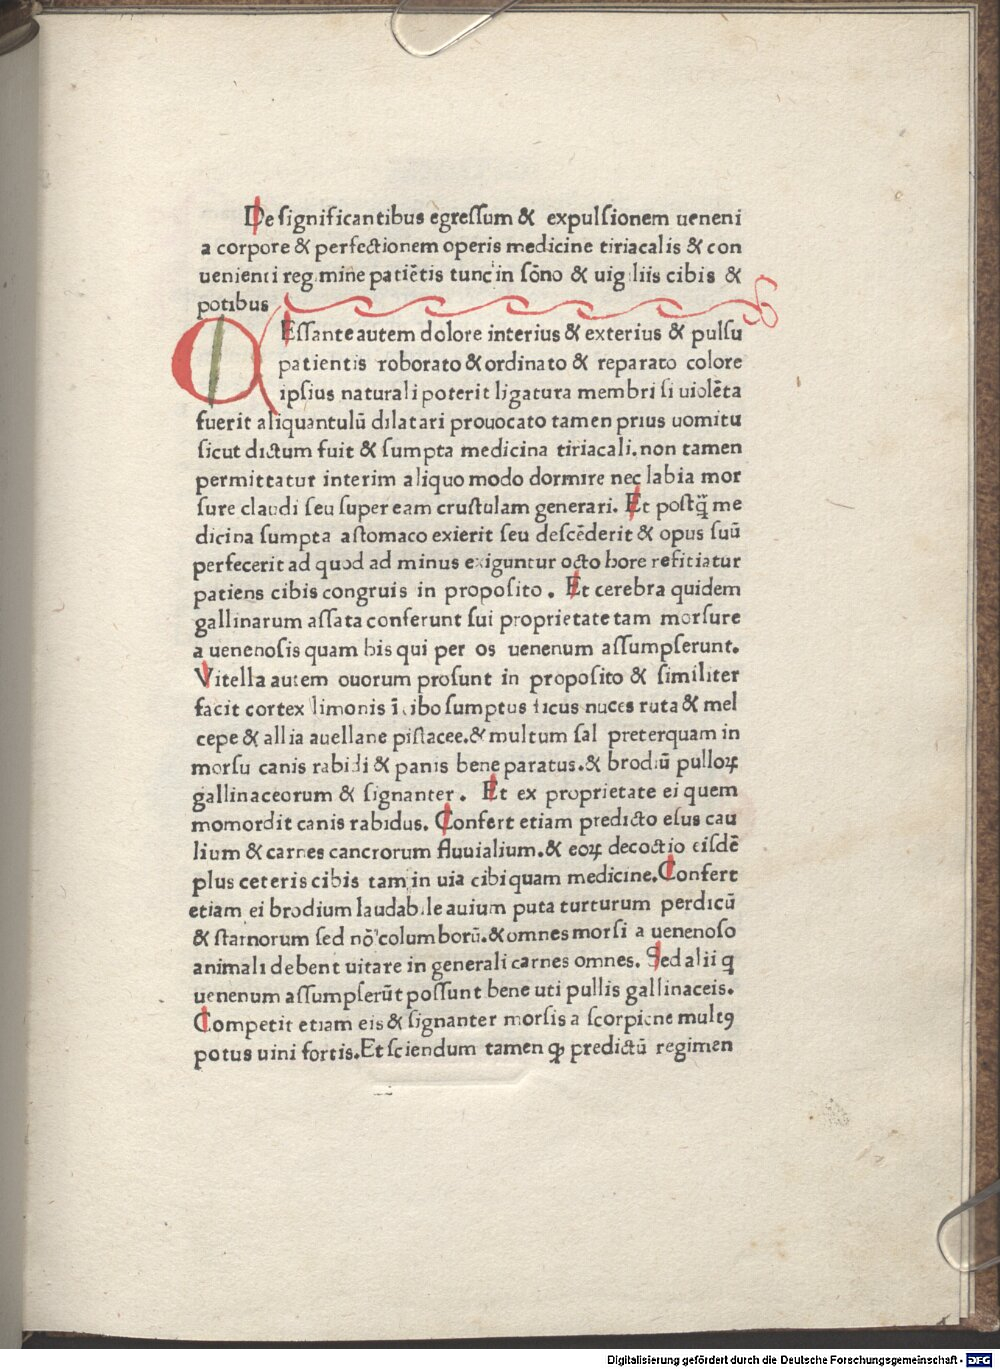 De significantibus egressum & expulsionem ueneni
a corpore & perfectionem operis medicine tiriacalis & con
uenienti reg mine patiētis tunc in sōno & uig liis cibis &
potibus
CEssante autem dolore interius & exterius & pulsu
patientis roborato & ordinato & reparato colore
ipsius naturali poterit ligatura membri si uiolēta
fuerit aliquantulū dilatari prouocato tamen prius uomitu
sicut dictum fuit & sumpta medicina tiriacali. non tamen
permittatur interim aliquo modo dormire nec labia mor
sure claudi seu super eam crustulam generari. Et postq̄ me
dicina sumpta a stomaco exierit seu descēderit & opus suū
perfecerit ad quod ad minus exiguntur octo hore refitiatur
patiens cibis congruis in proposito. Et cerebra quidem
gallinarum assata conferunt sui proprietate tam morsure
a uenenosis quam his qui per os uenenum assumpserunt.
Vitella autem ouorum prosunt in proposito & similiter
facit cortex limonis ī cibo sumptus ficus nuces ruta & mel
cepe & allia auellane pistacee. & multum sal preterquam in
morsu canis rabidi & panis bene paratus. & brodiū pulloꝝ
gallinaceorum & signanter. Et ex proprietate ei quem
momordit canis rabidus. Confert etiam predicto esus cau
lium & carnes cancrorum fluuialium. & eoꝝ decoctio eisdē
plus ceteris cibis tam in uia cibi quam medicine. Confert
etiam ei brodium laudabile auium puta turturum perdicū
& starnorum sed nō columborū. & omnes morsi a uenenoso
animali debent uitare in generali carnes omnes. Sed alii q
uenenum assumpserūt possunt bene uti pullis gallinaceis.
Competit etiam eis & signanter morsis a scorpione multꝰ
potus uini fortis. Et sciendum tamen ꝙ predictū regimen
Digitalisierung gefördert durch die Deutsche Forschungsgemeinschaft - DFG